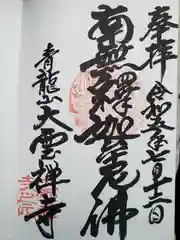 奉拝 令和三年七月十二日
南無釋迦牟尼佛
青龍山大雲禅寺